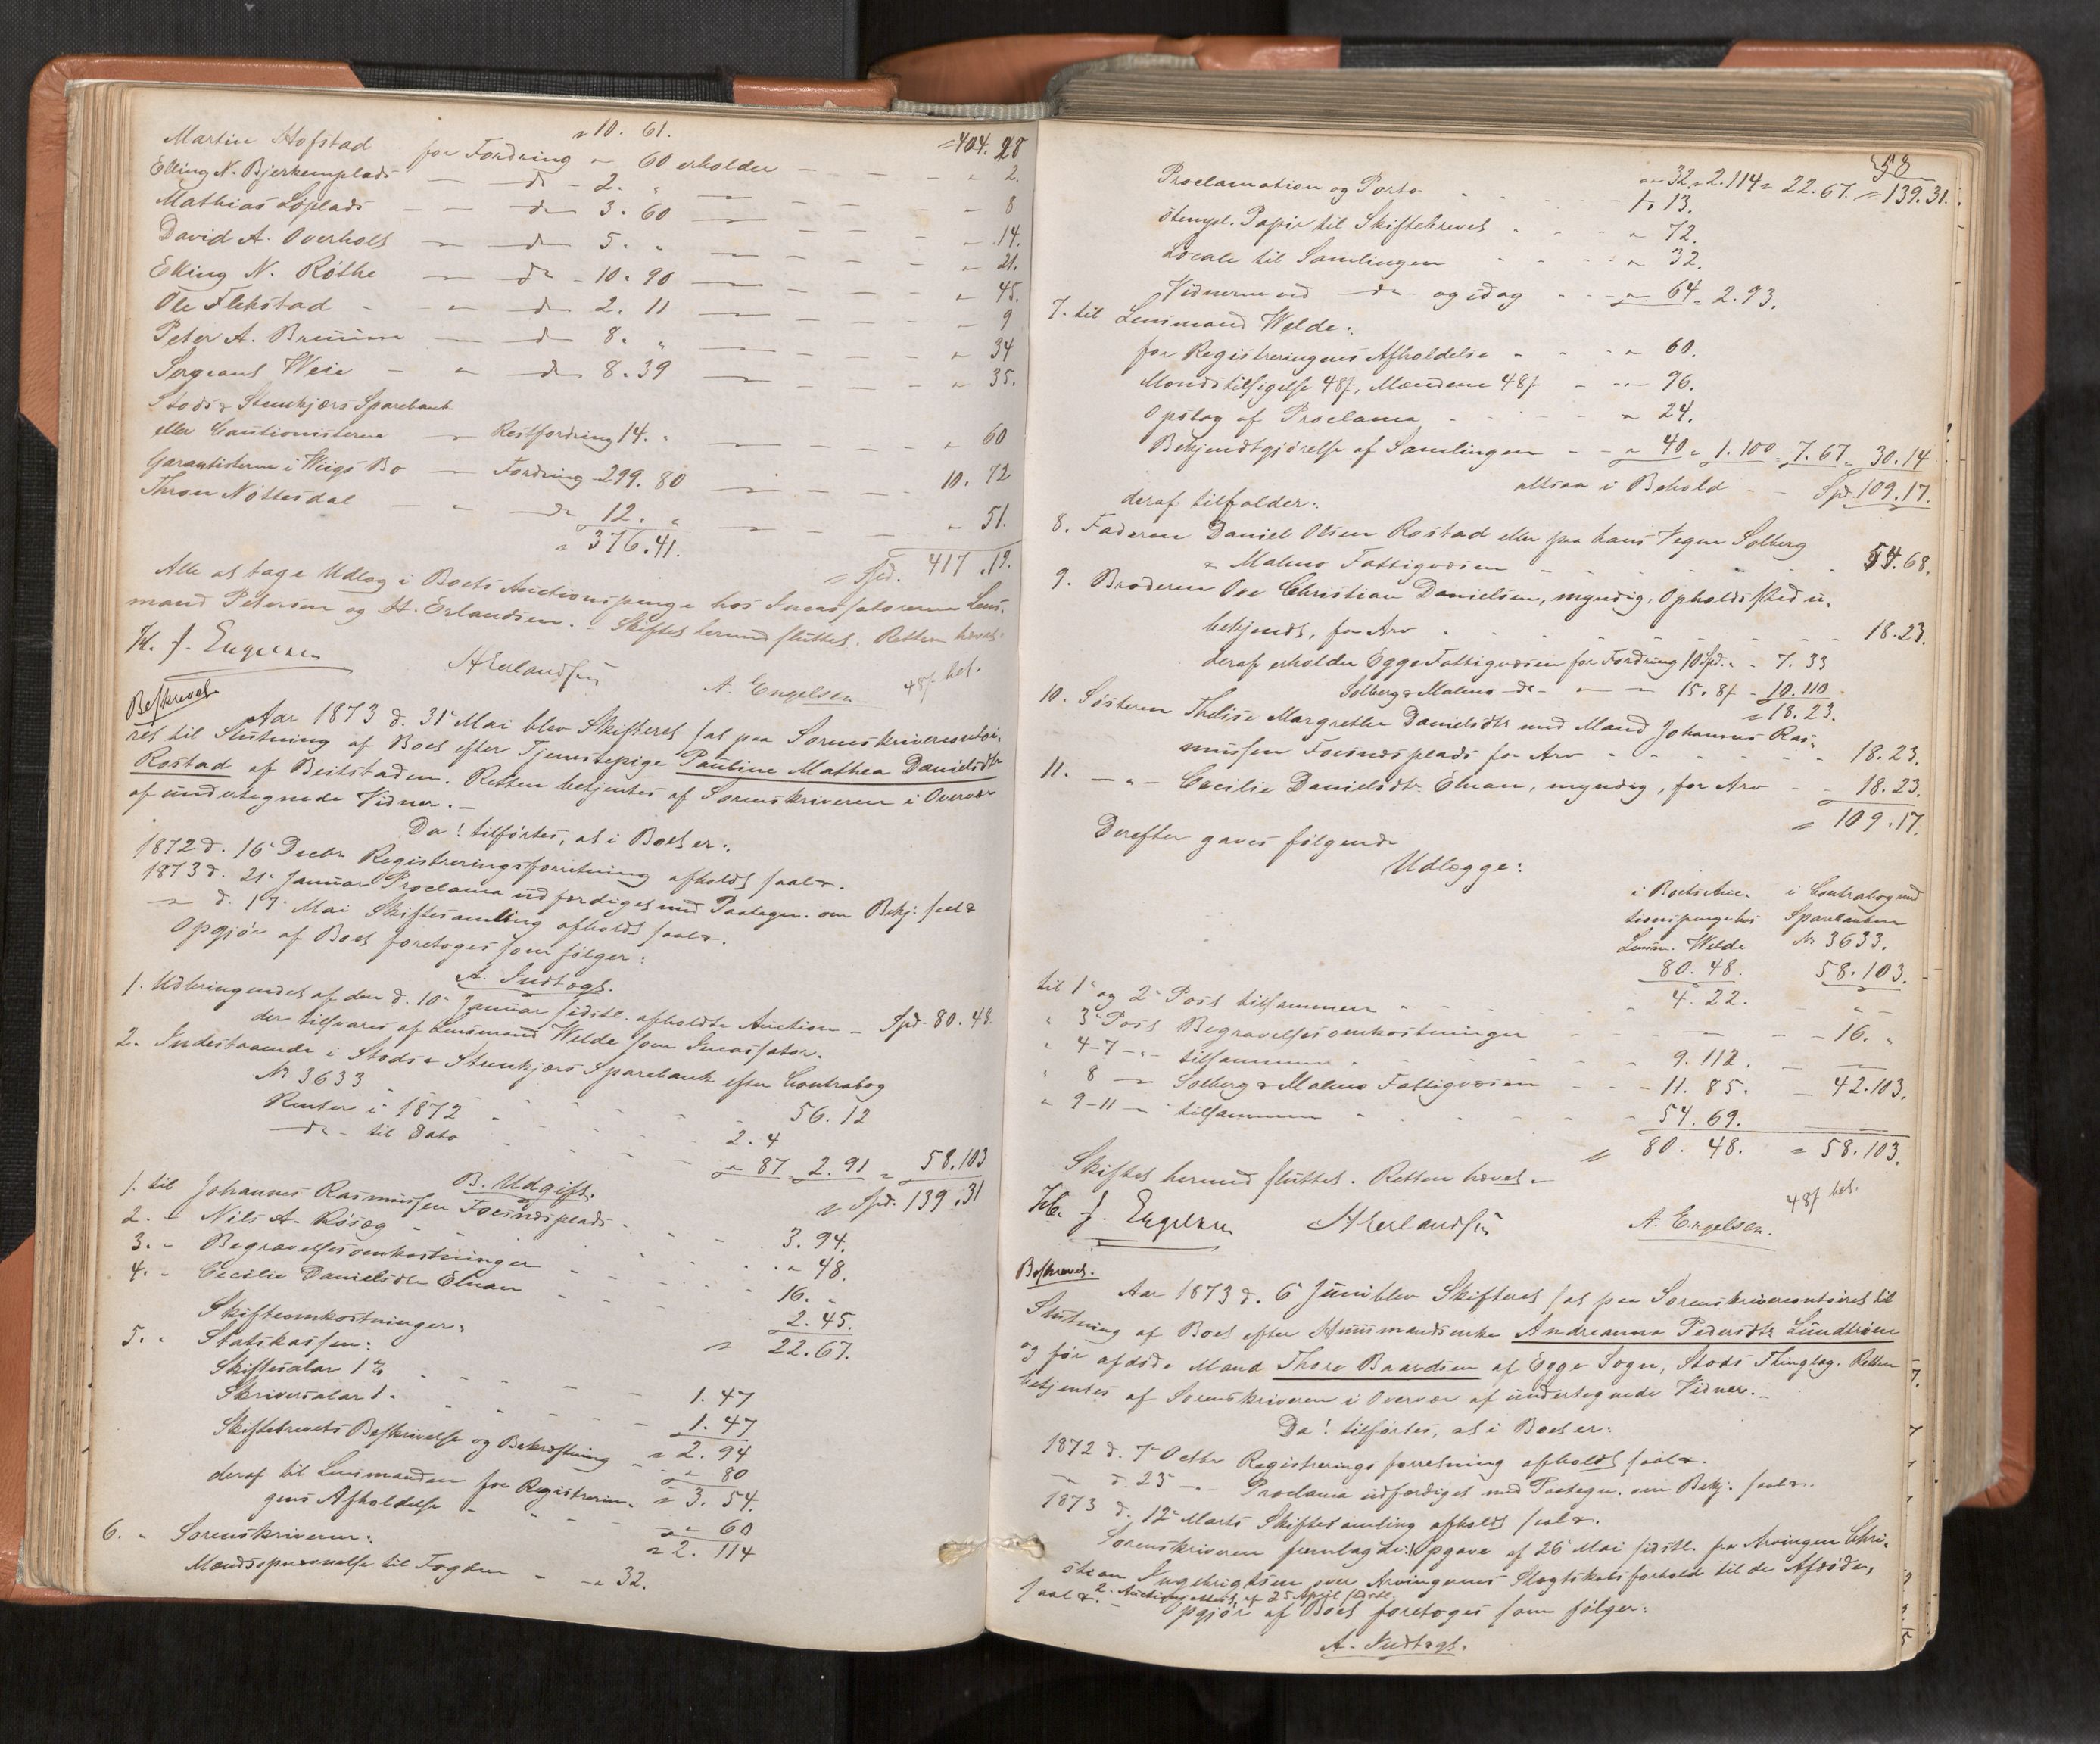 " 10. 61. = 404. 28
Martin Hofstad for Fordring " 60 erholder — — — " 2.
Elling N. Bjerkemplads — do - 2. " — — — " 8
Mathias Løplads — — do 3. 60 — — — " 14.
David A. Overholt — do 5. " — — — " 21.
Elling N. Røthe — do - 10. 90 — — — " 45.
Ole Flekstad - — do 2. 11 — — — " 9
Peter A. Bruum — do 8. " — — — " 34
Sergeant Weie — " do 8. 39 — — — " 35.
Stods & Stenkjærs Sparebank
eller Cautionisterne — Restfordring 14. " — — — " 60
Garantisterne i Wiigs Bo — Fordring 299. 80 — — — 10. 72
Thron Nøttesdal — " — do 12. " — — — " 51.
" 376. 41. = Spd. 417. 19.
Alle at tage Udlæg i Boets Auctionspenge hos Incassatorerne Lens-
mand Petersen og H. Erlandsen. - Skiftet hermed sluttet. Retten hævet.
H. J. Engelsen HErlandsen A. Engelsen 48 ß bet.
Beskrevet
Aar 1873 d. 31te Mai blev Skifteret sat paa Sorenskrivercontoi-
ret til Slutning af Boet efter Tjenestepige Pauline Mathea Danielsdtr
Rostad af Beitstaden. Retten betjentes af Sorenskriveren i Overvær
af undertegnede Vidner. —
Da! tilførtes, at i Boet er:
1872 d. 16de Decbr Registreringsforretning afholdt saal&.
1873 d. 21de Januar Proclama udfærdiget med Paategn. om Bekj. saal&
" d. 17. Mai Skiftesamling afholdt saal&.
Opgjør af Boet foretoges som følger:
A. Indtægt.
1. Udbringendet af den d. 10de Januar sidstl. afholdte Auction - Spd. 80. 48.
der tilsvares af Lensmand Welde som Incassator.
2. Indestaaende i Stods & Stenkjærs Sparebank efter Contrabog
No 3633 - - - - 56. 12
Renter i 1872 - - - - 2. 4
—do- til Dato - - - " 87 = 2. 91 = 58. 103
= Spd. 139. 31
B. Udgift.
1. til Johannes Rasmussen Foesnæsplads - - 3. 94.
2. " Nils A. Røseg - - - " 48.
3. " Begravelsesomkostninger - - - 16. "
4. " Cecilie Danielsdtr Elnan - - - 2. 45.
" 22. 67.
Skifteomkostninger:
5. " Statskassen:
Skiftesalær 1 % - - - 1. 47
Skriversalær 1 " - - - 1. 47
" 2. 94
Skiftebrevets Beskrivelse og Bekræftning - " 80
" 3. 54.
deraf til Lensmanden for Registrerin-
gens Afholdelse - - - " 60
" 2. 114
6. " Sorenskriveren:
Mændsopnævnelse til Fogden - " 32.
58
" 32. " 2. 114 = 22. 67. = 139. 31.
Proclamation og Porto - - - 1. 13.
stempl. Papir til Skiftebrevet - - - " 72.
Locale til Samlingen - - - " 32.
Vidnerne ved —do- og idag - - " 64 = 2. 93.
7. til Lensmand Welde:
for Registreringens Afholdelse - - " 60.
Mændstilsigelse 48 ß, Mændene 48 ß - - " 96.
Opslag af Proclama - - - " 24.
Bekjendtgjørelse af Samlingen - - " 40 = 1. 100 = 7. 67 = 30. 14
altsaa i Behold - - Spd. 109. 17.
deraf tilfalder:
8. Faderen Daniel Olsen Rostad eller paa hans Vegne Solberg
& Malmo Fattigvæsen - - - 54. 68.
9. Broderen Ove Christian Danielsen, myndig, Opholdssted u-
bekjendt, for Arv - - - 18. 23.
deraf erholder Egge Fattigvæsen for Fordring 10 Spd. " - 7. 33
Solberg & Malmo - do - " — " 15. 8 ß - 10. 110
= 18. 23.
10. Søsteren Thelise Margrethe Danielsdtr med Mand Johannes Ras-
mussen Foesnæsplads for Arv - - - 18. 23.
11. — " — Cecilie Danielsdtr Elnan, myndig, for Arv - - 18. 23.
= 109. 17.
Derefter gaves følgende
Udlægge:
i Boets Auc- i Contrabog med
tionspenge hos Sparebanken
Lensm. Welde No 3633.
80. 48. 58. 103.
til 1te og 2den Post tilsammen - - - 4. 22. "
" 3die Post Begravelsesomkostninger - - — - 16. "
" 4-7 - " - tilsammen - - - 9. 112. —
" 8 — " Solberg & Malmo Fattigvæsen - - 11. 85. - 42. 103.
" 9-11 - " tilsammen - - - 54. 69.
= 80. 48. = 58. 103.
Skiftet hermed sluttet. Retten hævet. -
H. J. Engelsen HErlandsen A. Engelsen. 48 ß bet.
Beskrevet.
Aar 1873 d. 6te Juni blev Skifteret sat paa Sorenskrivercontoiret til
Slutning af Boet efter Huusmandsenke Andreanna Pedersdtr Lundtrøen
og før afdøde Mand Thore Baardsen af Egge Sogn, Stods Thinglag. Retten
betjentes af Sorenskriveren i Overvær af undertegnede Vidner. -
Da! tilførtes, at i Boet er:
1872 d. 7de Octbr Registreringsforretning afholdt saal&.
" d. 23 - " - Proclama udfærdiget med Paategn. om Bekj. saal&.
1873 d. 12te Marts Skiftesamling afholdt saal&.
Sorenskriveren fremlagde: 1, Opgave af 26 Mai sidstl. fra Arvingen Chri-
stian Ingebrigtsen over Arvingernes Slægtskabsforhold til de Afdøde,
saal&. 2. Auctionsattest af 25 April sidstl.
Opgjør af Boet foretoges som følger:
A. Indtægt.